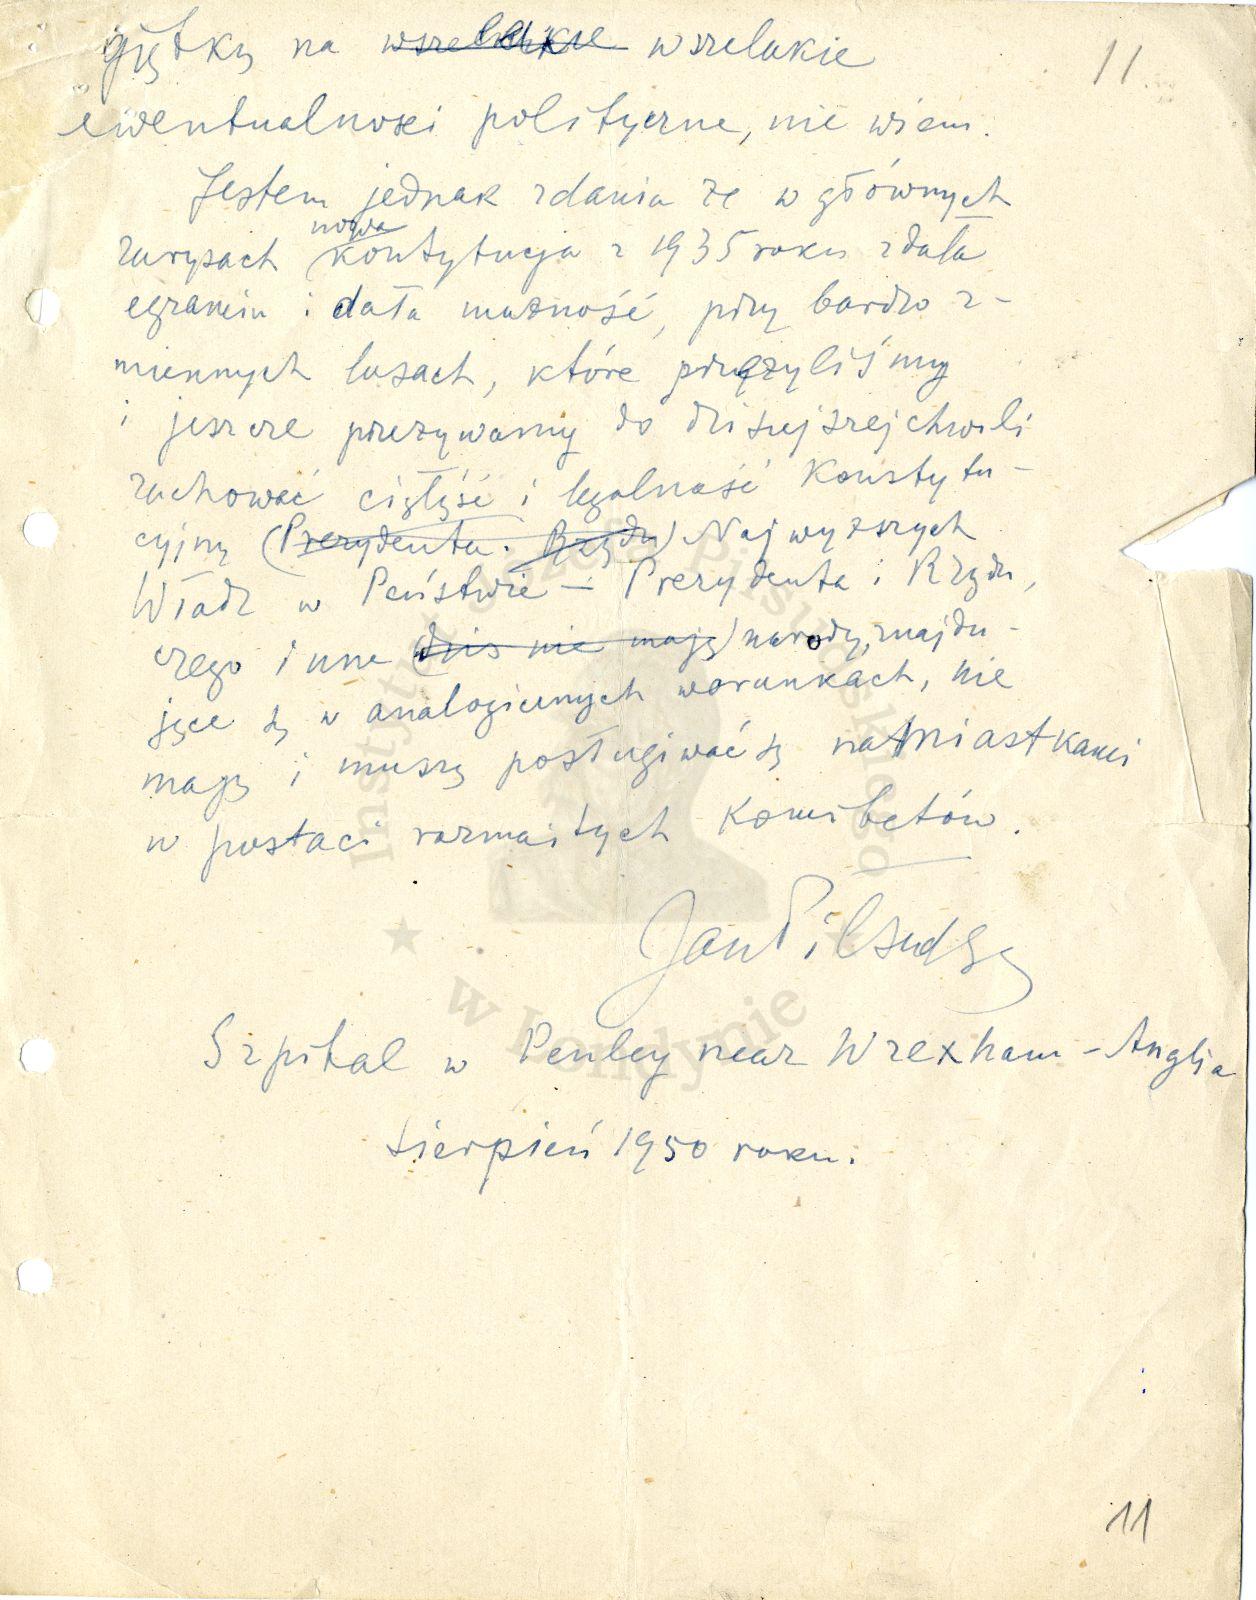 giętką na wszelakie wszelakie
11
ewentualnosci polityczne, nie wiem.
Jestem jednak zdania że w głównych
nowa
zarysach kontytucja z 1935 roku zdała
egzamin i dała możność, przy bardzo z-
miennych losach, które przeżyliśmy
i jeszcze przeżywamy do dzisiejszej chwili
zachować ciągłość i legalność Konstytu-
cyjną (Prezydenta. Rządu) Najwyższych
Władz w Państwie - Prezydenta i Rządu,
czego inne (dziś nie mają) narody, znajdu-
jące się w analogicznych warunkach, nie
mają i muszą posługiwać się namiastkami
w postaci rozmaitych Komitetów.
Jan Piłsudski
Szpital w Penley near Wrexham - Anglia
sierpień 1950 roku.
11
Instytut Józefa Piłsudskiego
w Londynie